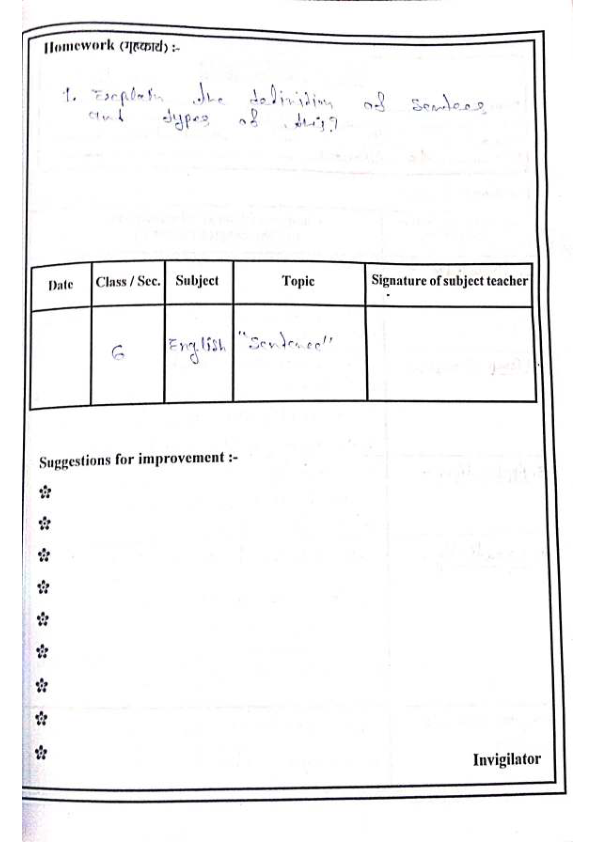 Homework (गृहकार्य) :-
1. Explain the definition of Sentece
and types of this?
Date Class / Sec. Subject Topic Signature of subject teacher
6 English "Sentence"
Suggestions for improvement :-
Invigilator